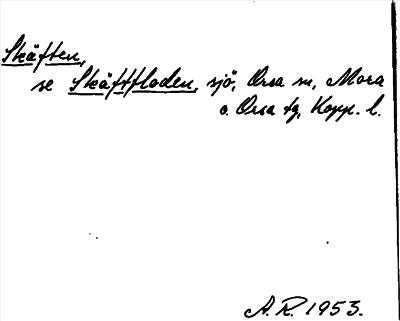 Skäften,
se Skäftfloden, sjö, Orsa sn, Mora
o. Orsa tg, Kopp. l.
A.R. 1953.